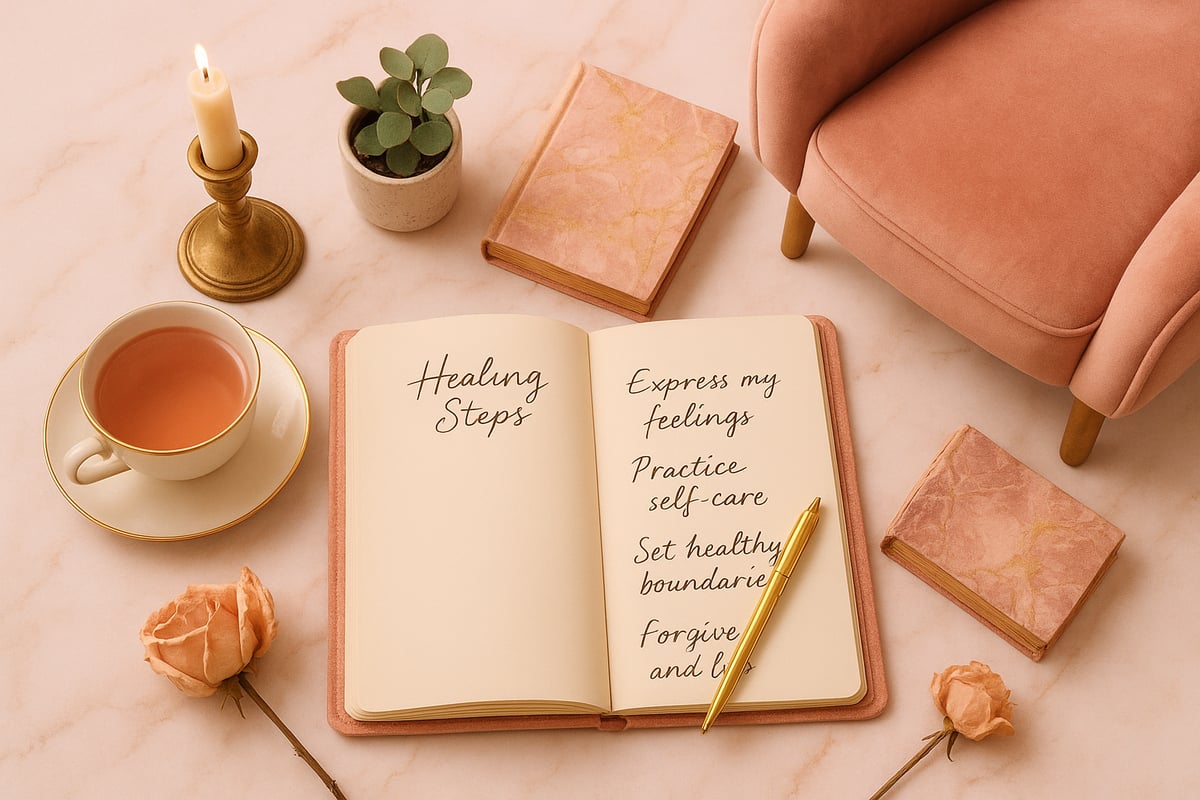 Healing
Steps
Express my
feelings
Practice
self-care
Set healthy
boundarie
Forgive
and